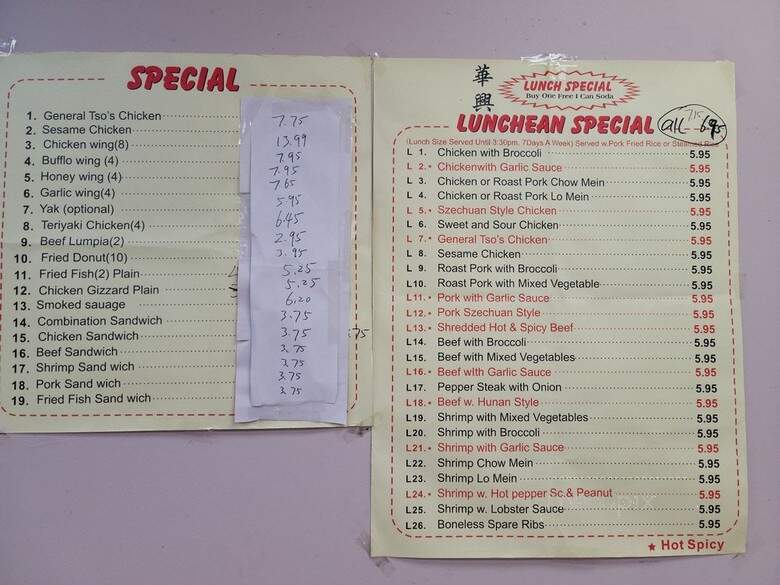 SPECIAL
1. General Tso's Chicken
2. Sesame Chicken
3. Chicken wing(8)
4. Bufflo wing (4)
5. Honey wing (4)
6. Garlic wing(4)
7. Yak (optional)
8. Teriyaki Chicken(4)
9. Beef Lumpia(2)
10. Fried Donut(10)
11. Fried Fish(2) Plain
12. Chicken Gizzard Plain
13. Smoked sauage
14. Combination Sandwich
15. Chicken Sandwich
16. Beef Sandwich
17. Shrimp Sand wich
18. Pork Sand wich
19. Fried Fish Sand wich
7.75
13.99
7.95
7.95
7.65
5.95
6.45
2.95
3.95
5.25
5.25
6.20
3.75
3.75
3.75
3.75
3.75
3.75
華興
LUNCH SPECIAL
Buy One Free 1 Can Soda
LUNCHEAN SPECIAL all 7.15
(Lunch Size Served Until 3:30pm. 7Days A Week) Served w.Pork Fried Rice or Steamed Rice
L 1. Chicken with Broccoli 5.95
L 2. Chickenwith Garlic Sauce 5.95
L 3. Chicken or Roast Pork Chow Mein 5.95
L 4. Chicken or Roast Pork Lo Mein 5.95
L 5. Szechuan Style Chicken 5.95
L 6. Sweet and Sour Chicken 5.95
L 7. General Tso's Chicken 5.95
L 8. Sesame Chicken 5.95
L 9. Roast Pork with Broccoli 5.95
L10. Roast Pork with Mixed Vegetable 5.95
L11. Pork with Garlic Sauce 5.95
L12. Pork Szechuan Style 5.95
L13. Shredded Hot & Spicy Beef 5.95
L14. Beef with Broccoli 5.95
L15. Beef with Mixed Vegetables 5.95
L16. Beef wIth Garlic Sauce 5.95
L17. Pepper Steak with Onion 5.95
L18. Beef w. Hunan Style 5.95
L19. Shrimp with Mixed Vegetables 5.95
L20. Shrimp with Broccoli 5.95
L21. Shrimp with Garlic Sauce 5.95
L22. Shrimp Chow Mein 5.95
L23. Shrimp Lo Mein 5.95
L24. Shrimp w. Hot pepper Sc.& Peanut 5.95
L25. Shrimp w. Lobster Sauce 5.95
L26. Boneless Spare Ribs 5.95
★ Hot Spicy